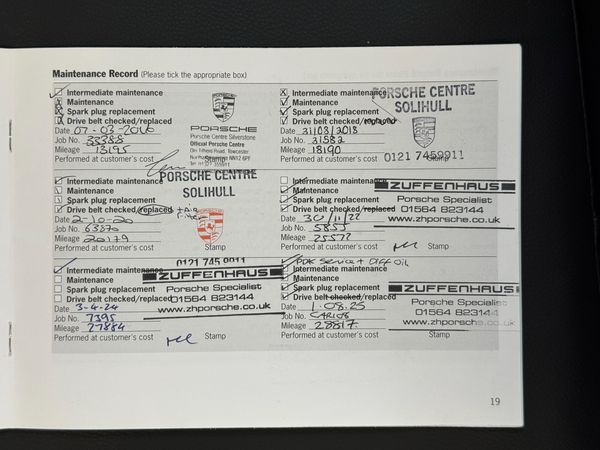 Maintenance Record (Please tick the appropriate box)
Intermediate maintenance
Maintenance
Spark plug replacement
Drive belt checked/replaced
Date 07-03-2016
Job No. 38388
Mileage 13195
Performed at customer's cost
Stamp
PORSCHE
Porsche Centre Silverstone
Official Porsche Centre
Intermediate maintenance
Maintenance
Spark plug replacement
Drive belt checked/replaced
Date 31/03/2018
Job No. 31582
Mileage 18190
Performed at customer's cost
Stamp
PORSCHE CENTRE
SOLIHULL
0121 7459911
Intermediate maintenance
Maintenance
Spark plug replacement
Drive belt checked/replaced
Date 2-10-20
Job No. 63870
Mileage 20179
Performed at customer's cost
Stamp
PORSCHE CENTRE
SOLIHULL
0121 745 9911
Intermediate maintenance
Maintenance
Spark plug replacement
Drive belt checked/replaced
Date 30/11/22
Job No. 5855
Mileage 25572
Performed at customer's cost
Stamp
ZUFFENHAUS
Porsche Specialist
01564 823144
www.zhporsche.co.uk
Intermediate maintenance
Maintenance
Spark plug replacement
Drive belt checked/replaced
Date 3-4-24
Job No. 7395
Mileage 27884
Performed at customer's cost
Stamp
ZUFFENHAUS
Porsche Specialist
01564 823144
www.zhporsche.co.uk
PDK Service + Diff Oil
Intermediate maintenance
Maintenance
Spark plug replacement
Drive belt checked/replaced
Date 1.08.25
Job No.
Mileage 28817
Performed at customer's cost
Stamp
ZUFFENHAUS
Porsche Specialist
01564 823144
www.zhporsche.co.uk
19